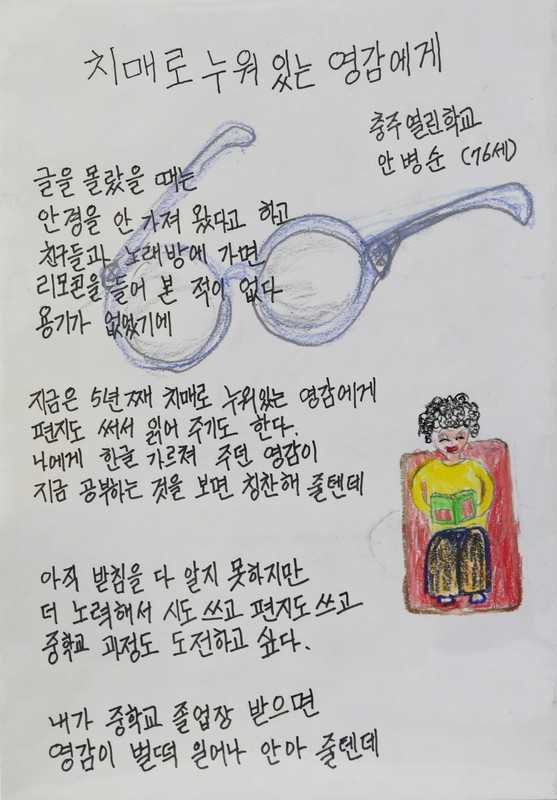 치매로 누워 있는 영감에게
충주열린학교
안병순 (76세)
글을 몰랐을 때는
안경을 안 가져 왔다고 하고
친구들과 노래방에 가면
리모콘을 들어 본 적이 없다
용기가 없었기에
지금은 5년째 치매로 누워있는 영감에게
편지도 써서 읽어 주기도 한다.
나에게 한글 가르쳐 주던 영감이
지금 공부하는 것을 보면 칭찬해 줄텐데
아직 받침을 다 알지 못하지만
더 노력해서 시도 쓰고 편지도 쓰고
중학교 과정도 도전하고 싶다.
내가 중학교 졸업장 받으면
영감이 벌떡 일어나 안아 줄텐데